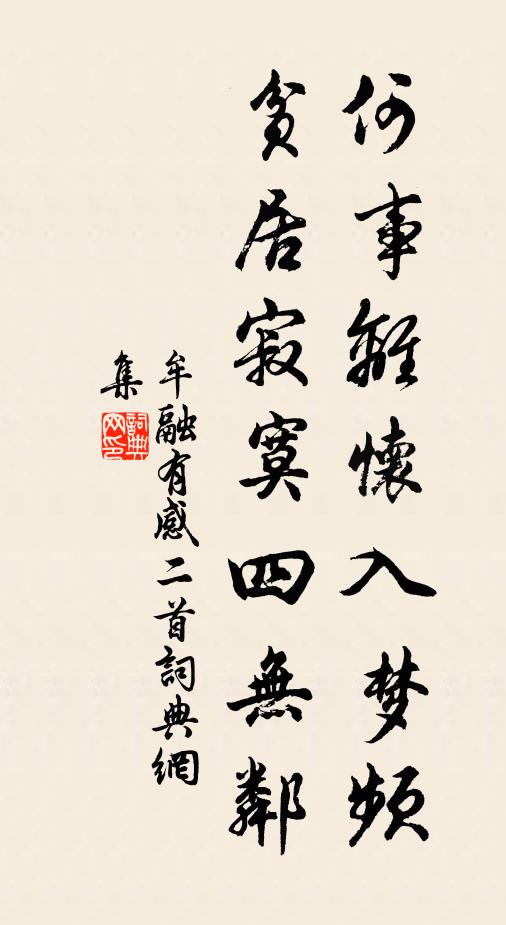 何事離懷入梦頻
貧居寂寞四無鄰
牟融有感二首詞典網
集
詞典
网印